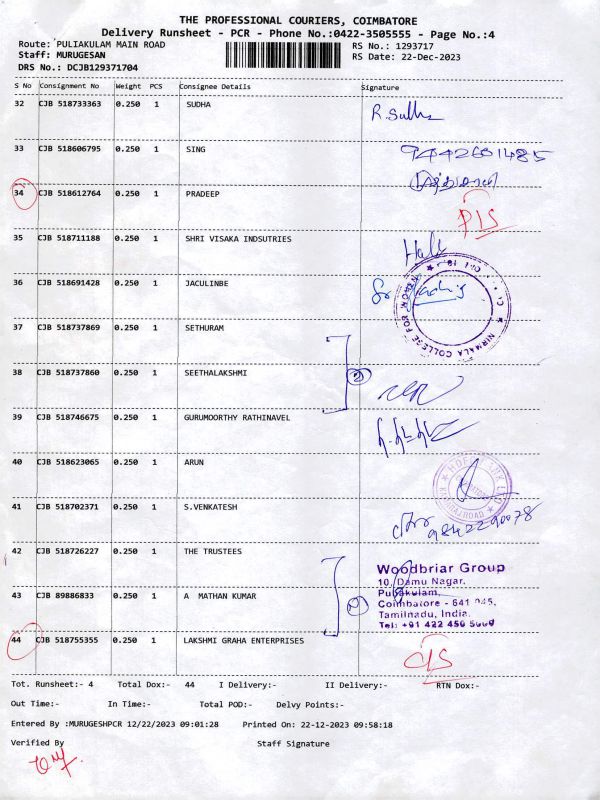 THE PROFESSIONAL COURIERS, COIMBATORE
Delivery Runsheet - PCR - Phone No.:0422-3505555 - Page No.:4
Route: PULIAKULAM MAIN ROAD
RS No.: 1293717
Staff: MURUGESAN
RS Date: 22-Dec-2023
DRS No.: DCJB129371704
S No Consignment No Weight PCS Consignee Details Signature
32 CJB 518733363 0.250 1 SUDHA R. Sudha
33 CJB 518606795 0.250 1 SING 9442601485
34 CJB 518612764 0.250 1 PRADEEP P/S
35 CJB 518711188 0.250 1 SHRI VISAKA INDSUTRIES
36 CJB 518691428 0.250 1 JACULINBE
NIRMALA COLLEGE FOR WOMEN
37 CJB 518737869 0.250 1 SETHURAM
38 CJB 518737860 0.250 1 SEETHALAKSHMI 2
39 CJB 518746675 0.250 1 GURUMOORTHY RATHINAVEL
40 CJB 518623065 0.250 1 ARUN
41 CJB 518702371 0.250 1 S.VENKATESH 9842290078
42 CJB 518726227 0.250 1 THE TRUSTEES
Woodbriar Group
10, Damu Nagar,
43 CJB 89886833 0.250 1 A MATHAN KUMAR 2
Puliakulam,
Coimbatore - 641 045,
Tamilnadu, India.
Tel: +91 422 450
44 CJB 518755355 0.250 1 LAKSHMI GRAHA ENTERPRISES C/S
Tot. Runsheet:- 4 Total Dox:- 44 I Delivery:- II Delivery:- RTN Dox:-
Out Time:- In Time:- Total POD:- Delvy Points:-
Entered By :MURUGESHPCR 12/22/2023 09:01:28 Printed On: 22-12-2023 09:58:18
Verified By Staff Signature